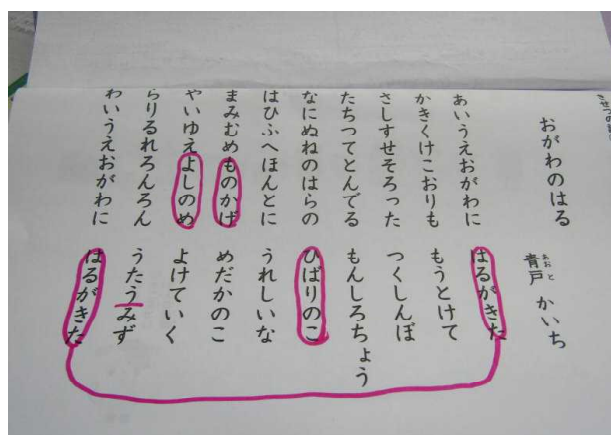 おがわのはる
青戸 かいち
あおと
あいうえおがわに はるがきた
かきくけこおりも もうとけて
さしすせそろった つくしんぼ
たちつてとんでる もんしろちょう
なにぬねのはらの ひばりのこ
はひふへほんとに うれしいな
まみむめものかげ めだかのこ
やいゆえよしのめ よけていく
らりるれろんろん うたうみず
わいうえおがわに はるがきた